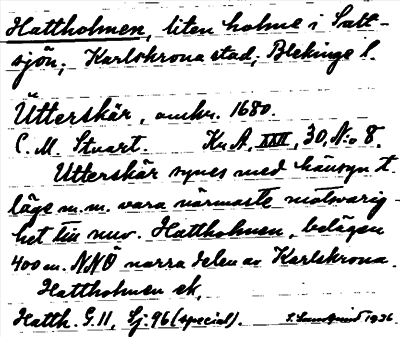 Hattholmen, liten holme i Salt-
sjön; Karlskrona stad; Blekinge l.
Ütterskär, omkr. 1680.
C. M. Stuart. Kr. A. XXII, 30, N:o 8.
Utterskär synes med hänsyn t.
läge m.m. vara närmaste motsvarig-
het till nuv. Hattholmen, belägen
400 m. NNÖ norra delen av Karlskrona.
Hattholmen ek,
Hatth. G. 11, Sj. 96 (special). 1936